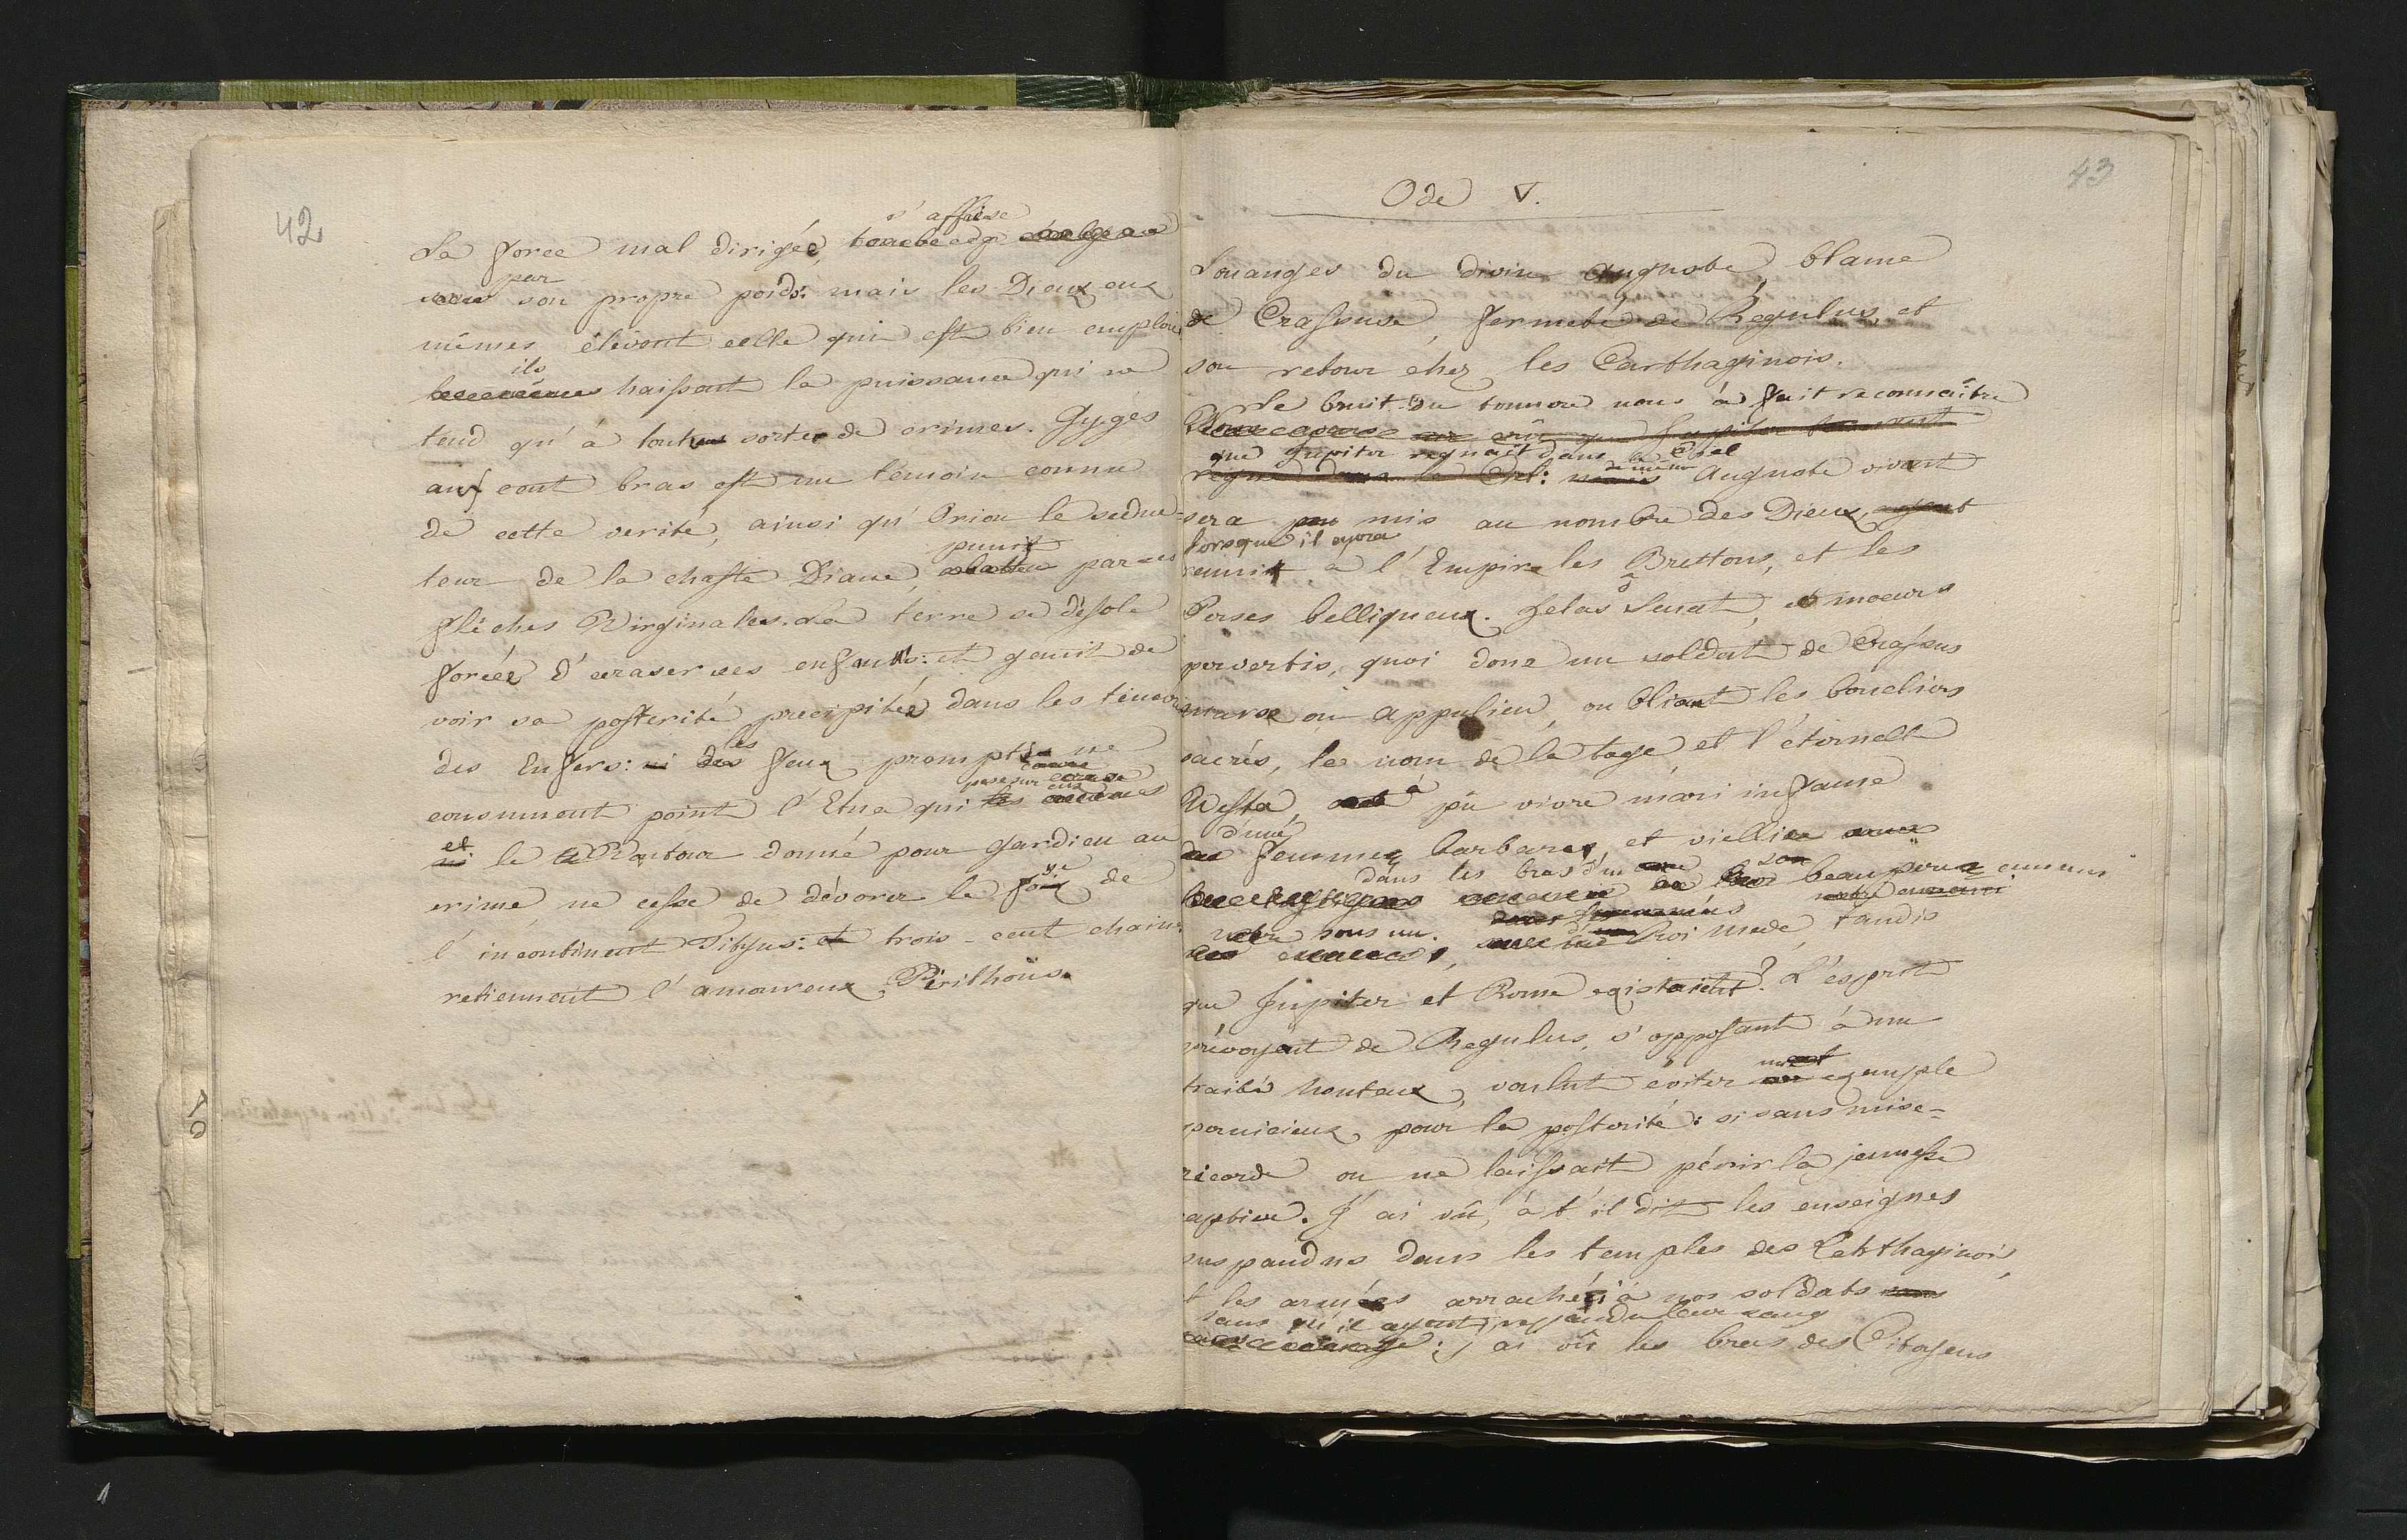 42
s'affaise
La force mal dirigée, tombe
par
son propre poids: mais les Dieux eux
mêmes élèvent celle qui est bien emploié
ils
haissent la puissance qui ne
tend qu'à toutes sortes de crimes. Gygés
aux cent bras est un témoin connu
de cette verité, ainsi qu'Orion le seduc-
punit
teur de la chaste Diane, abattu par ses
flêches Virginales. La terre se désole
forcée d'ecraser ses enfants: et gemit de
voir sa posterité precipitée dans les tenebres
les
des Enfers: ni des feux prompts ne
pese sur eux
consument point l'Etna qui les
et
ni le Vautour donné pour gardien au
ye
crime, ne cesse de dévorer le foix de
l'incontinent Tityus: et trois-cent chaines
retiennent l'amoureux Pirithoüs.
43
Ode V.
Louanges du divin Auguste, blame
de Crassus, fermeté de Regulus, et
son retour chez les Carthaginois.
Le bruit du tonnere nous à fait reconnaître
Nous avons crû que Jupiter tonnant
que Jupiter regnait dans le Ciel
de même
regne dans le Ciel: mais Auguste vivant
sera mis au nombre des Dieux, ayant
lorsque il aura
reunit à l'Empire les Brettons, et les
ô
Perses belliqueux. helas Senat, et moeurs
pervertis, quoi donc un soldat de Crassus
marse où appulien, oubliant les boucliers
sacrés, le nom de la toge, et l'éternelle
à
Vesta, pû vivre mari infame
d'une
femmes barbares, et viellir
dans les bras d'un son beaupere ennemi
notre ennemi
sous un Roi mede, tandis
que Jupiter et Rome existaient? L'esprit
prévoyant de Regulus, s'opposant à un
traité honteux, voulut éviter exemple
pernicieux pour la posterité: si sans mise-
ricorde on ne laissait périr la jeunesse
captive. J'ai vû, à t'il dit les enseignes
suspandus dans les temples des Carthaginois,
et les armées arrachées à nos soldats sans
sans qu'il ayent repandu leur sang
: j'ai vû les bras des Citoyens